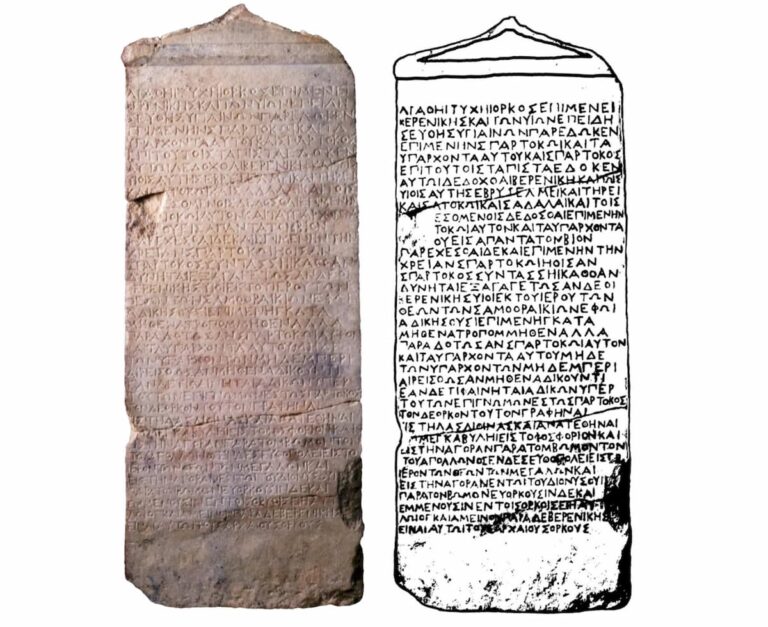 ΑΓΑΘΗΙΤΥΧΗΙΟΡΚΟΣΕΠΙΜΕΝΕΙ
ΒΕΡΕΝΙΚΗΣΚΑΙΤΩΝΥΙΩΝΕΠΕΙΔΗ
ΣΕΥΘΗΣΥΓΙΑΙΝΩΝΠΑΡΕΔΩΚΕΝ
ΕΠΙΜΕΝΗΝΣΠΑΡΤΟΚΩΙΚΑΙΤΑ
ΥΠΑΡΧΟΝΤΑΑΥΤΟΥΚΑΙΣΠΑΡΤΟΚΟΣ
ΕΠΙΤΟΥΤΟΙΣΤΑΠΙΣΤΑΕΔΟΚΕΝ
ΑΥΤΩΙΔΕΔΟΧΘΑΙΒΕΡΕΝΙΚΗΙΚΑΙΤΟΙΣ
ΥΙΟΙΣΑΥΤΗΣΕΒΡΥΤΕΛΜΕΙΚΑΙΤΗΡΕΙ
ΚΑΙΣΑΤΟΚΩΙΚΑΙΣΑΔΑΛΑΙΚΑΙΤΟΙΣ
ΕΣΟΜΕΝΟΙΣΔΕΔΟΣΘΑΙΕΠΙΜΕΝΗΝ
ΤΟΚΩΙΑΥΤΟΝΚΑΙΤΑΥΠΑΡΧΟΝΤΑ
ΟΥΕΙΣΑΠΑΝΤΑΤΟΝΒΙΟΝ
ΠΑΡΕΧΕΣΘΑΙΔΕΚΑΙΕΠΙΜΕΝΗΝΤΗΝ
ΧΡΕΙΑΝΣΠΑΡΤΟΚΩΙΗΟΙΣΑΝ
ΣΠΑΡΤΟΚΟΣΣΥΝΤΑΣΣΗΙΚΑΘΟΑΝ
ΔΥΝΗΤΑΙΕΞΑΓΑΓΕΤΩΣΑΝΔΕΟΙ
ΒΕΡΕΝΙΚΗΣΥΙΟΙΕΚΤΟΥΙΕΡΟΥΤΩΝ
ΘΕΩΝΤΩΝΣΑΜΟΘΡΑΙΚΙΩΝΕΦΩΙ
ΑΔΙΚΗΣΟΥΣΙΕΠΙΜΕΝΗΓΚΑΤΑ
ΜΗΘΕΝΑΤΡΟΠΟΜΜΗΘΕΝΑΛΛΑ
ΠΑΡΑΔΟΤΩΣΑΝΣΠΑΡΤΟΚΩΙΑΥΤΟΝ
ΚΑΙΤΑΥΠΑΡΧΟΝΤΑΑΥΤΟΥΜΗΔΕ
ΤΩΝΥΠΑΡΧΟΝΤΩΝΜΗΔΕΜΠΕΡΙ
ΑΙΡΕΙΣΘΩΣΑΝΜΗΘΕΝΑΔΙΚΟΥΝΤΙ
ΕΑΝΔΕΤΙΦΑΙΝΗΤΑΙΑΔΙΚΩΝΥΠΕΡ
ΤΟΥΤΩΝΕΠΙΓΝΩΜΩΝΕΣΤΩΣΠΑΡΤΟΚΟΣ
ΤΟΝΔΕΟΡΚΟΝΤΟΥΤΟΝΓΡΑΦΗΝΑΙ
ΕΙΣΤΗΛΑΣΛΙΘΙΝΑΣΚΑΙΑΝΑΤΕΘΗΝΑΙ
ΕΜΜΕΓΚΑΒΥΛΗΙΕΙΣΤΟΦΩΣΦΟΡΙΟΝΚΑΙ
ΕΙΣΤΗΝΑΓΟΡΑΝΠΑΡΑΤΟΜΒΩΜΟΝΤΟΝ
ΤΟΥΑΠΟΛΛΩΝΟΣΕΝΔΕΣΕΥΘΟΠΟΛΕΙΕΙΣΤΟ
ΙΕΡΟΝΤΩΝΘΕΩΝΤΩΝΜΕΓΑΛΩΝΚΑΙ
ΕΙΣΤΗΝΑΓΟΡΑΝΕΝΤΩΙΤΟΥΔΙΟΝΥΣΟΥ
ΠΑΡΑΤΟΝΒΩΜΟΝΕΥΟΡΚΟΥΣΙΝΔΕΚΑΙ
ΕΜΜΕΝΟΥΣΙΝΕΝΤΟΙΣΟΡΚΟΙΣΕΙΗ
ΛΩΙΟΓΚΑΙΑΜΕΙΝΟΝΠΑΡΑΔΕΒΕΡΕΝΙΚΗΣ
ΕΙΝΑΙΑΥΤΩΙΤΟΥΣΑΡΧΑΙΟΥΣΟΡΚΟΥΣ